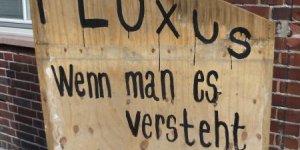 FLUXUS
Wenn man es
versteht